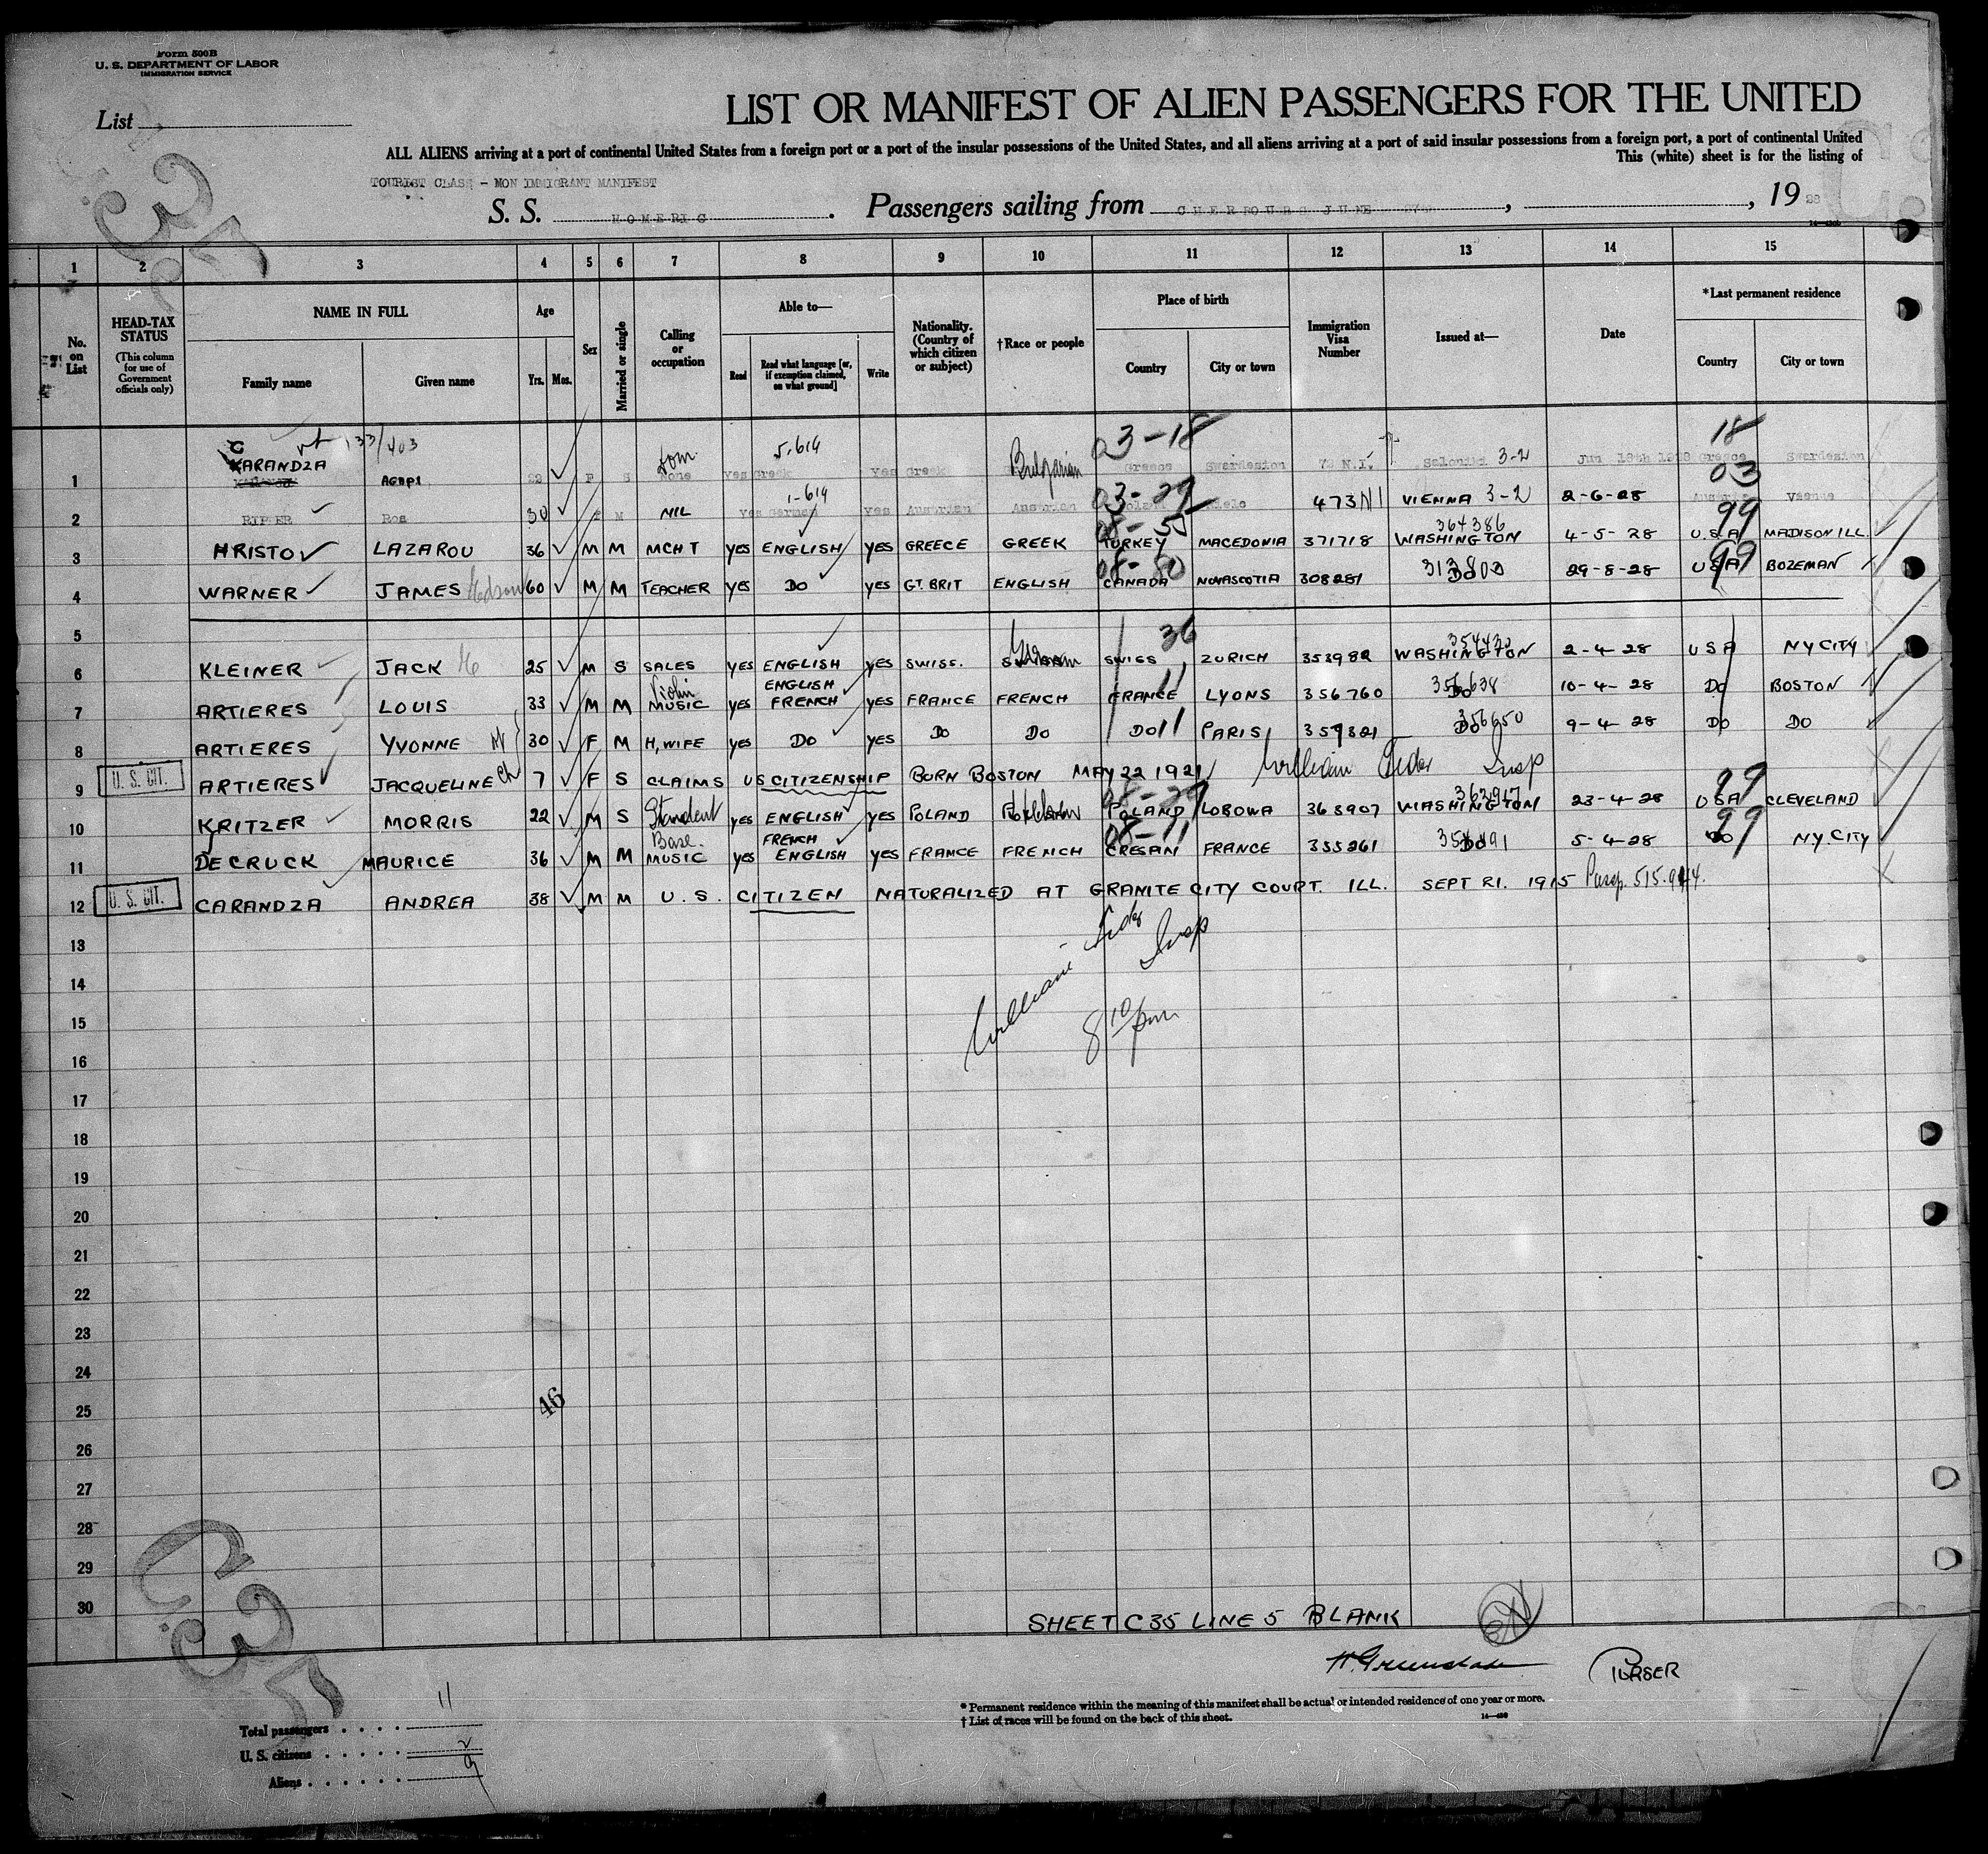 Form 500B
U. S. DEPARTMENT OF LABOR
IMMIGRATION SERVICE
List
LIST OR MANIFEST OF ALIEN PASSENGERS FOR THE UNITED
ALL ALIENS arriving at a port of continental United States from a foreign port or a port of the insular possessions of the United States, and all aliens arriving at a port of said insular possessions from a foreign port, a port of continental United
This (white) sheet is for the listing of
TOURIST CLASS - NON IMMIGRANT MANIFEST
S. S. HOMERIC. Passengers sailing from CHERBOURG JUNE , , 19 28
1 2 3 4 5 6 7 8 9 10 11 12 13 14 15
No. on List
HEAD-TAX STATUS (This column for use of Government officials only)
NAME IN FULL Family name Given name
Age Yrs. Mos.
Sex
Married or single
Calling or occupation
Able to— Read Read what language [or, if exemption claimed, on what ground] Write
Nationality. (Country of which citizen or subject)
†Race or people
Place of birth Country City or town
Immigration Visa Number
Issued at—
Date
*Last permanent residence Country City or town
C 133/403 5-614 03-18 18
1 KARANDZA Agapi 22 F S None Dom Yes Greek Yes Greek Bulgarian Greece Swardesion 72 N.I. Saloniki 3-2 Greece Swardesion
1-614 03-29 03
2 Rosa 30 M NIL Yes German Yes Austrian Austrian 473 NI VIENNA 3-2 2-6-28 Austria Vienna
08-55 364386 99
3 HRISTO LAZAROU 36 M M MCHT yes ENGLISH yes GREECE GREEK TURKEY MACEDONIA 371718 WASHINGTON 4-5-28 U.S.A MADISON ILL.
08-80 99
4 WARNER JAMES Hodson 60 M M TEACHER yes DO yes GT. BRIT ENGLISH CANADA NOVASCOTIA 308281 DO 29-8-28 USA BOZEMAN
5
36 354430
6 KLEINER JACK 25 M S SALES yes ENGLISH yes SWISS. German SWISS ZURICH 353982 WASHINGTON 2-4-28 USA NY CITY
Violin ENGLISH 11
7 ARTIERES LOUIS 33 M M MUSIC yes FRENCH yes FRANCE FRENCH FRANCE LYONS 356760 DO 356638 10-4-28 DO BOSTON
8 ARTIERES YVONNE 30 F M H, WIFE yes DO yes DO DO DO 11 PARIS 359321 DO 356650 9-4-28 DO DO
U. S. CIT.
9 ARTIERES JACQUELINE Ch 7 F S CLAIMS US CITIZENSHIP BORN BOSTON MAY 22 1921 William Insp
08-29 363917 99
10 KRITZER MORRIS 22 M S Student yes ENGLISH yes POLAND POLAND LOBOWA 363907 WASHINGTON 23-4-28 USA CLEVELAND
Base. FRENCH 08-11 99
11 DECRUCK MAURICE 36 M M MUSIC yes ENGLISH yes FRANCE FRENCH CRESAN FRANCE 355261 DO 5-4-28 DO N.Y. CITY
U. S. CIT.
12 CARANDZA ANDREA 38 M M U. S. CITIZEN NATURALIZED AT GRANITE CITY COURT. ILL. SEPT 21. 1915
13
William Insp
14
15
8 10/pm
16
17
18
19
20
21
22
23
24
46
25
26
27
28
29
30
SHEET C35 LINE 5 BLANK
PURSER
* Permanent residence within the meaning of this manifest shall be actual or intended residence of one year or more.
† List of races will be found on the back of this sheet.
Total passengers . . . . 11
U. S. citizens . . . . . 2
Aliens . . . . . . 9
C35